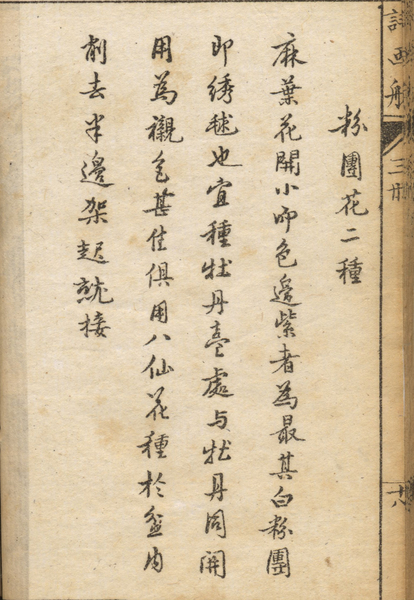 詩画舫
三廿
八
粉團花二種
麻葉花開小而色邉紫者為最其白粉團
即绣毬也宜種牡丹䑓處与牡丹同開
用為襯色甚佳俱用八仙花種於盆内
削去半邉架起就接